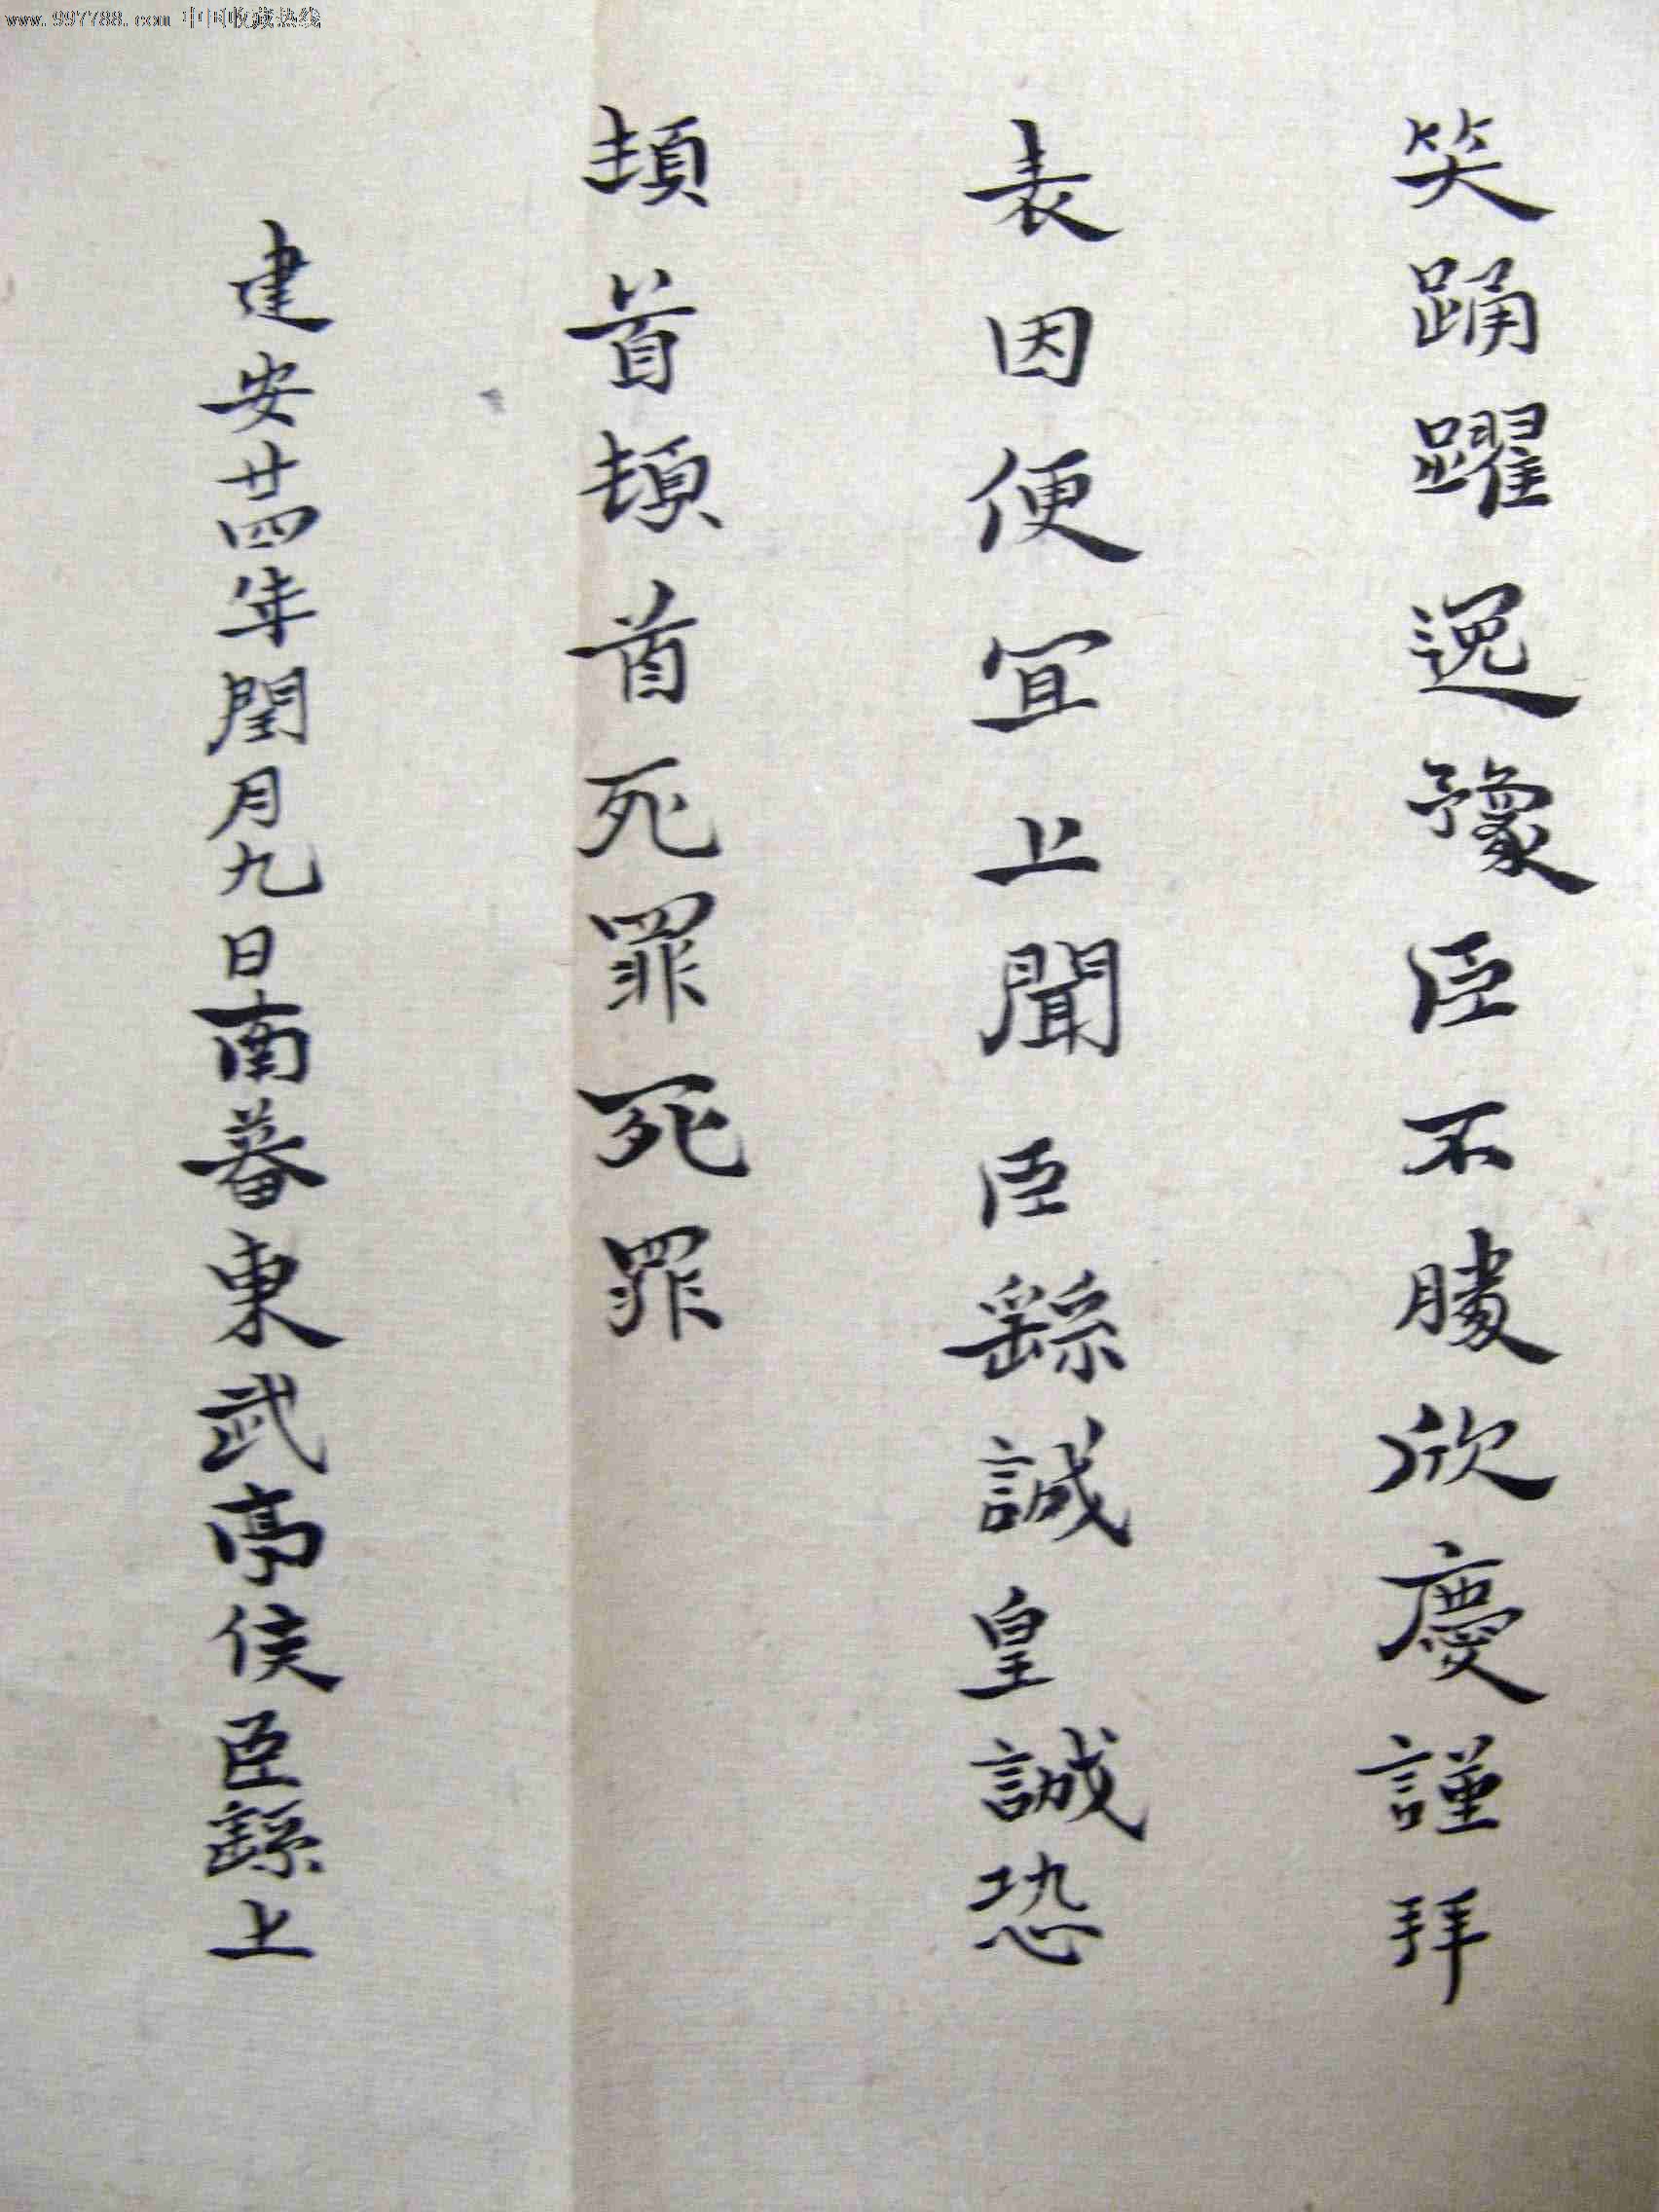 www.997788.com 中国收藏热线
笑踊躍逸豫臣不勝欣慶謹拜
表因便宜上聞臣繇誠皇誠恐
頓首頓首死罪死罪
建安廿四年閏月九日南蕃東武亭侯臣繇上